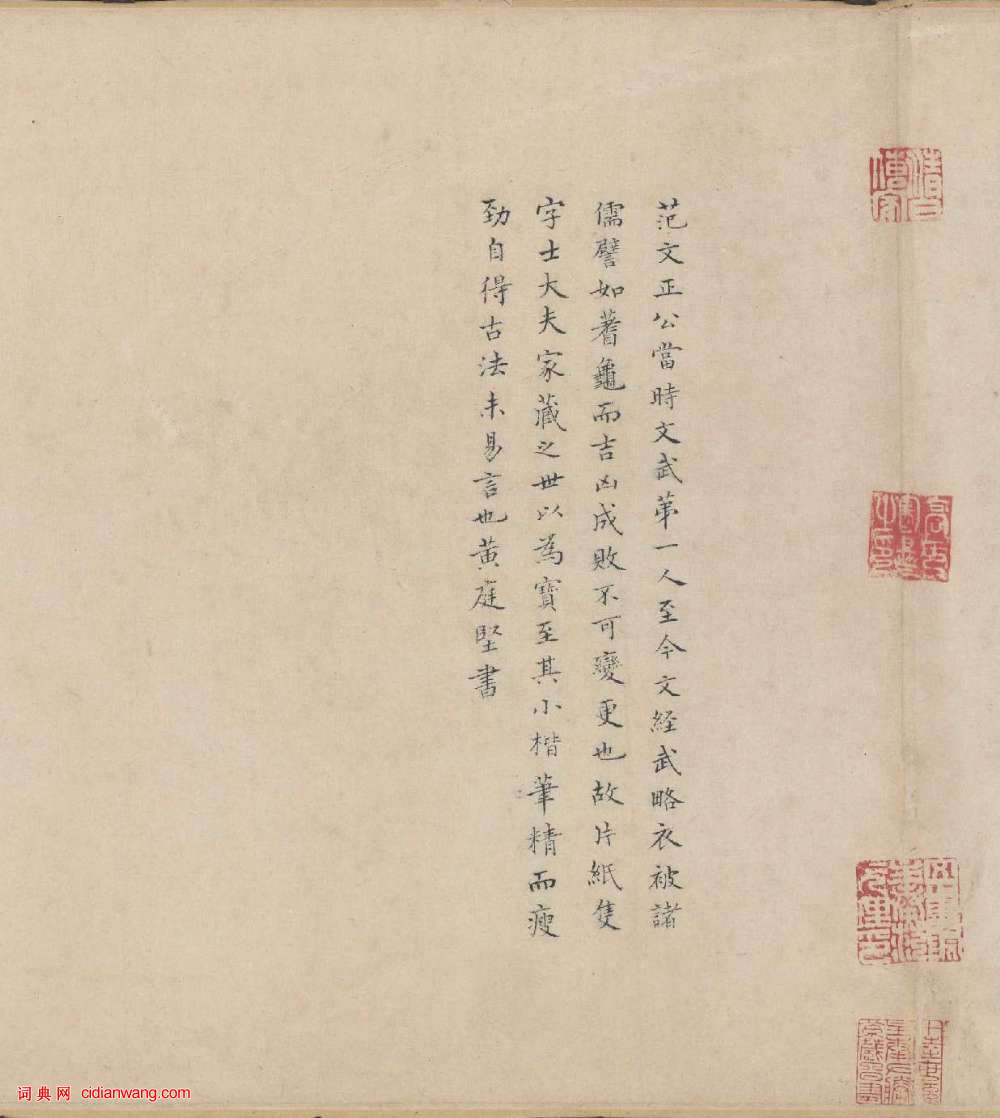 范文正公當時文武第一人至今文經武略衣被諸
儒譬如蓍龜而吉凶成敗不可變更也故片紙隻
字士大夫家藏之世以為寶至其小楷筆精而瘦
勁自得古法未易言也黃庭堅書
词典网 cidianwang.com